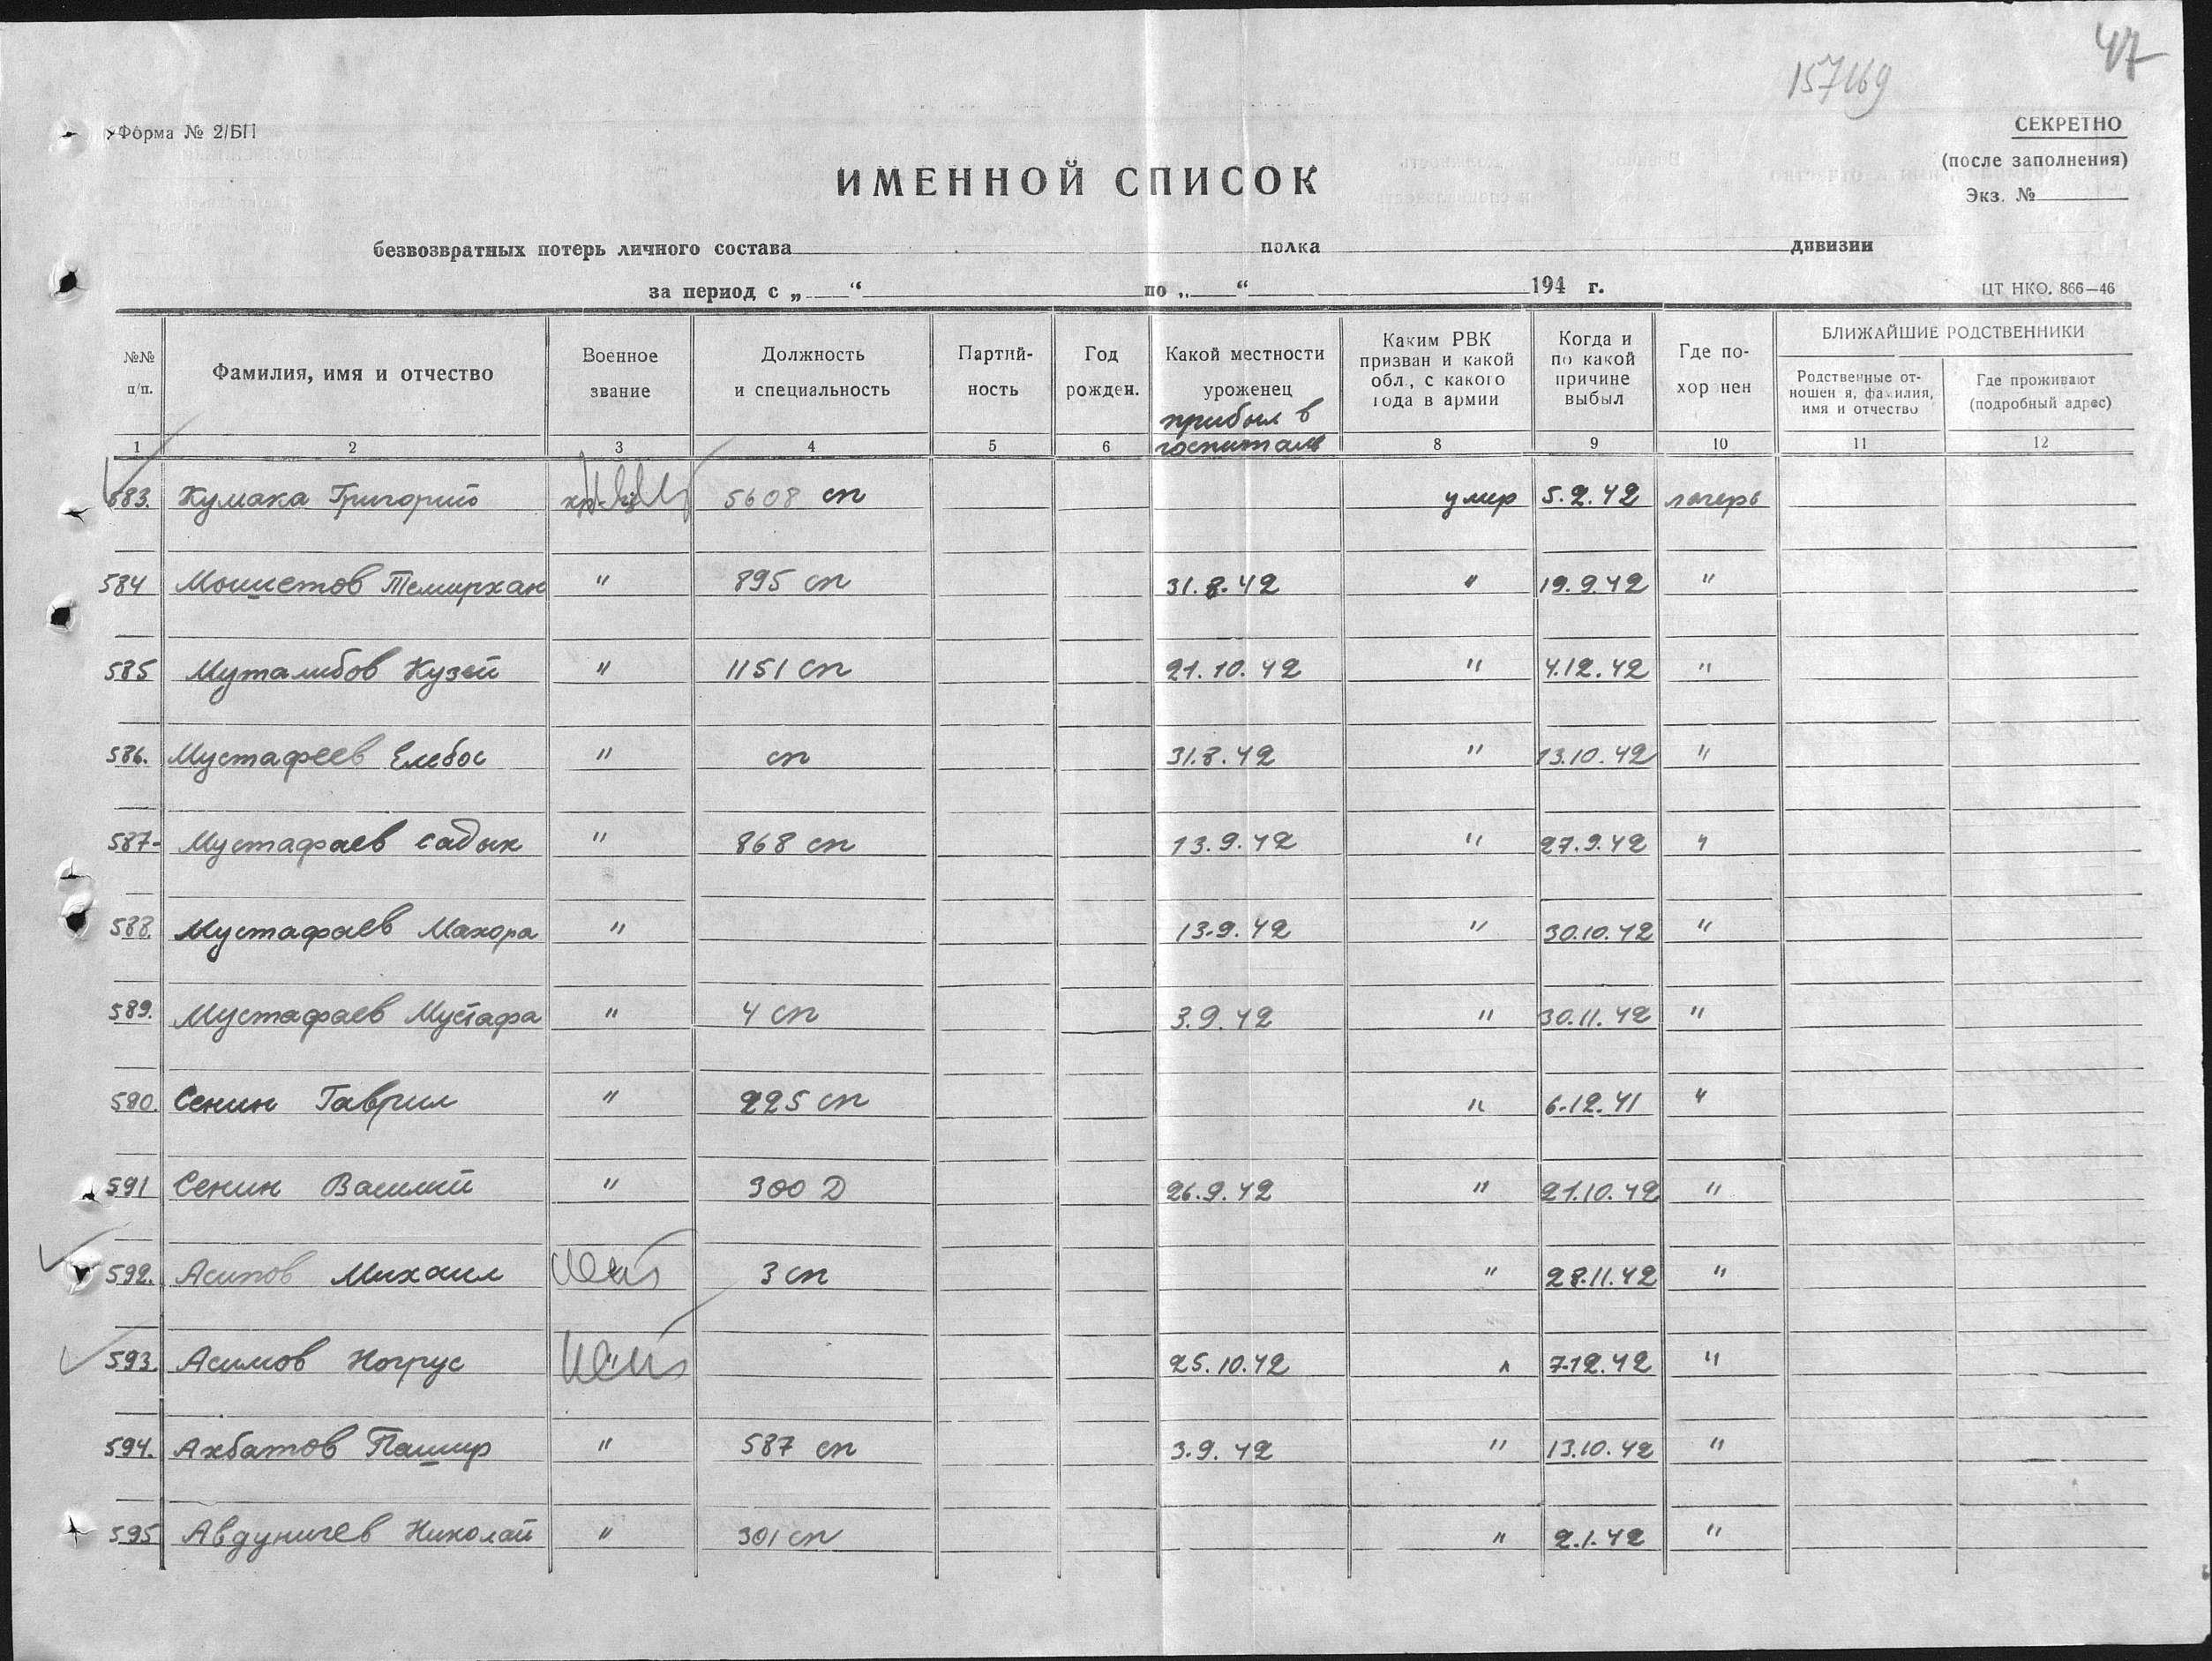 47
157169
Форма № 2/БП
СЕКРЕТНО
(после заполнения)
Экз. №
ИМЕННОЙ СПИСОК
безвозвратных потерь личного состава полка дивизии
за период с „ “ по „ “ 194 г.
ЦТ НКО. 866—46
№№ п/п. Фамилия, имя и отчество Военное звание Должность и специальность Партийность Год рожден. Какой местности уроженец Каким РВК призван и какой обл., с какого года в армии Когда и по какой причине выбыл Где похоронен БЛИЖАЙШИЕ РОДСТВЕННИКИ
Родственные отношения, фамилия, имя и отчество Где проживают (подробный адрес)
прибыл в госпиталь
1 2 3 4 5 6 8 9 10 11 12
583. Кумака Григорий 5608 сп умер 5.2.42 лагерь
584 Мошетов Темирхан " 895 сп 31.8.42 " 19.9.42 "
585 Муталибов Кузей " 1151 сп 21.10.42 " 4.12.42 "
586. Мустафеев Елебос " сп 31.8.42 " 13.10.42 "
587- Мустафаев Садык " 868 сп 13.9.42 " 27.9.42 "
588. Мустафаев Махора " 13.9.42 " 30.10.42 "
589. Мустафаев Мустафа " 4 сп 3.9.42 " 30.11.42 "
590. Сенин Гаврил " 225 сп " 6.12.41 "
591 Сенин Василий " 300 D 26.9.42 " 21.10.42 "
592. Асипов Михаил 3 сп " 28.11.42 "
593. Асимов Ногрус 25.10.42 " 7.12.42 "
594. Ахбатов Пашир " 587 сп 3.9.42 " 13.10.42 "
595 Авдуничев Николай " 301 сп " 2.1.42 "